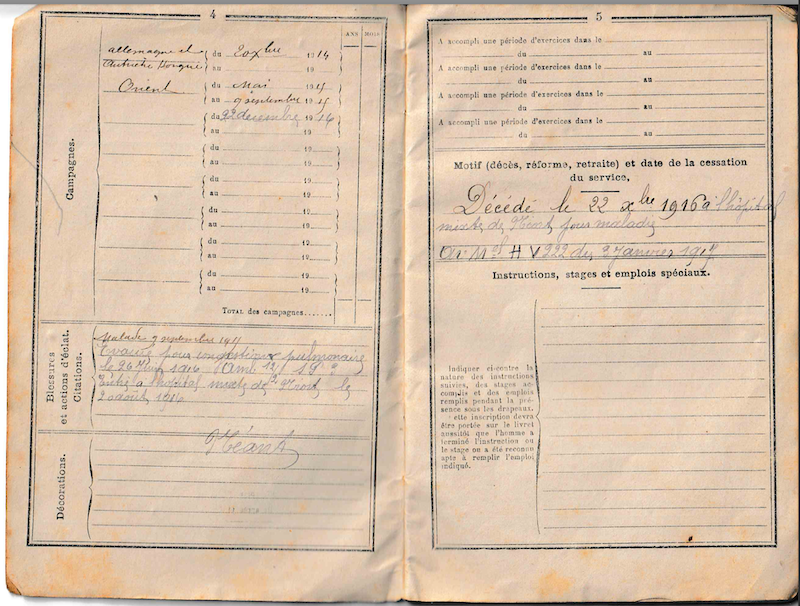 4
ANS MOIS
Campagnes.
allemagne et du 2 août 1914
Autriche Hongrie au 19
Orient du Mai 1915
au 9 septembre 1915
du 22 décembre 1916
au 19
du 19
au 19
du 19
au 19
du 19
au 19
du 19
au 19
du 19
au 19
TOTAL des campagnes......
Blessures
et actions d'éclat.
Citations.
Malade 9 septembre 1915
Evacué pour congestion pulmonaire
le 26 1916
Entré à l'hôpital mixte de Niort le
2 août 1916
Décorations.
Néant
5
A accompli une période d'exercices dans le
du au
A accompli une période d'exercices dans le
du au
A accompli une période d'exercices dans le
du au
A accompli une période d'exercices dans le
du au
Motif (décès, réforme, retraite) et date de la cessation
du service,
Décédé le 22 xbre 1916 à l'hôpital
mixte de Niort pour maladie
H V 222 du 2 Janvier 1917
Instructions, stages et emplois spéciaux.
Indiquer ci-contre la
nature des instructions
suivies, des stages ac-
complis et des emplois
remplis pendant la pré-
sence sous les drapeaux.
ette inscription devra
être portée sur le livret
aussitôt que l'homme a
terminé l'instruction ou
le stage ou a été reconnu
apte à remplir l'emploi
indiqué.